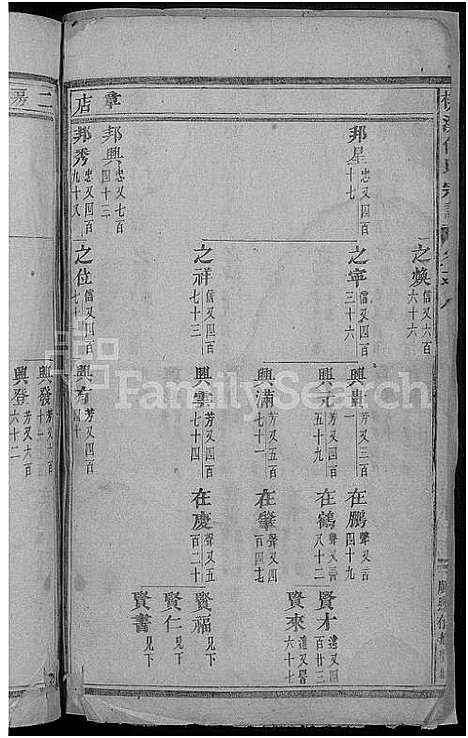 章店
之煥 信又六百六十六
邦星 忠又四百十七
之寧 信又四百三十六
興貴 芳又三百一
在鵬 聲又言四十九
興元 芳又四百五十九
在鶴 聲又言又十二
賢才 遠又百廿三
賢來 遠又言六十七
興滿 芳又五百七十一
在肇 聲又四百四七
之祥 信又四百七十三
興雲 芳又四百七十四
在慶 聲又五百二十
賢福 見下
賢仁 見下
賢書 見下
邦興 忠又七百四十三
邦秀 忠又四百九十又
之位 信又四百七十
興有 芳又四百四十
二房
興發 芳又六百十一
興登 芳又六百六十二
FamilySearch